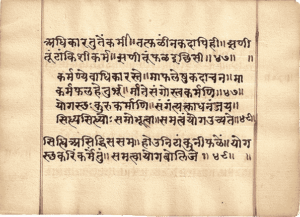 अधिकार तुतें कर्मीं॥ तत्फळीं न कदापि ही॥ झणी
तूं टाकिशी कर्म॥ झणी तूं फळ इछिसी॥४७॥
कर्मण्येवाधिकारस्ते॥ मा फलेषु कदाचन॥ मा
कर्मफलहेतुर्भू॥ र्मा ते संगोस्त्वकर्मणि॥४७॥
योगस्छः कुरु कर्माणि॥ संगं त्यक्त्वा धनंजय॥
सिध्यसिध्योः समो भूत्वा॥ समत्वं योग उच्यते॥४८॥
सिद्धि असिद्धिस सम॥ होउनि टाकुनी फळें॥ योग
स्छ करिं कर्में तूं॥ समत्वा योग बोलिजे॥४८॥